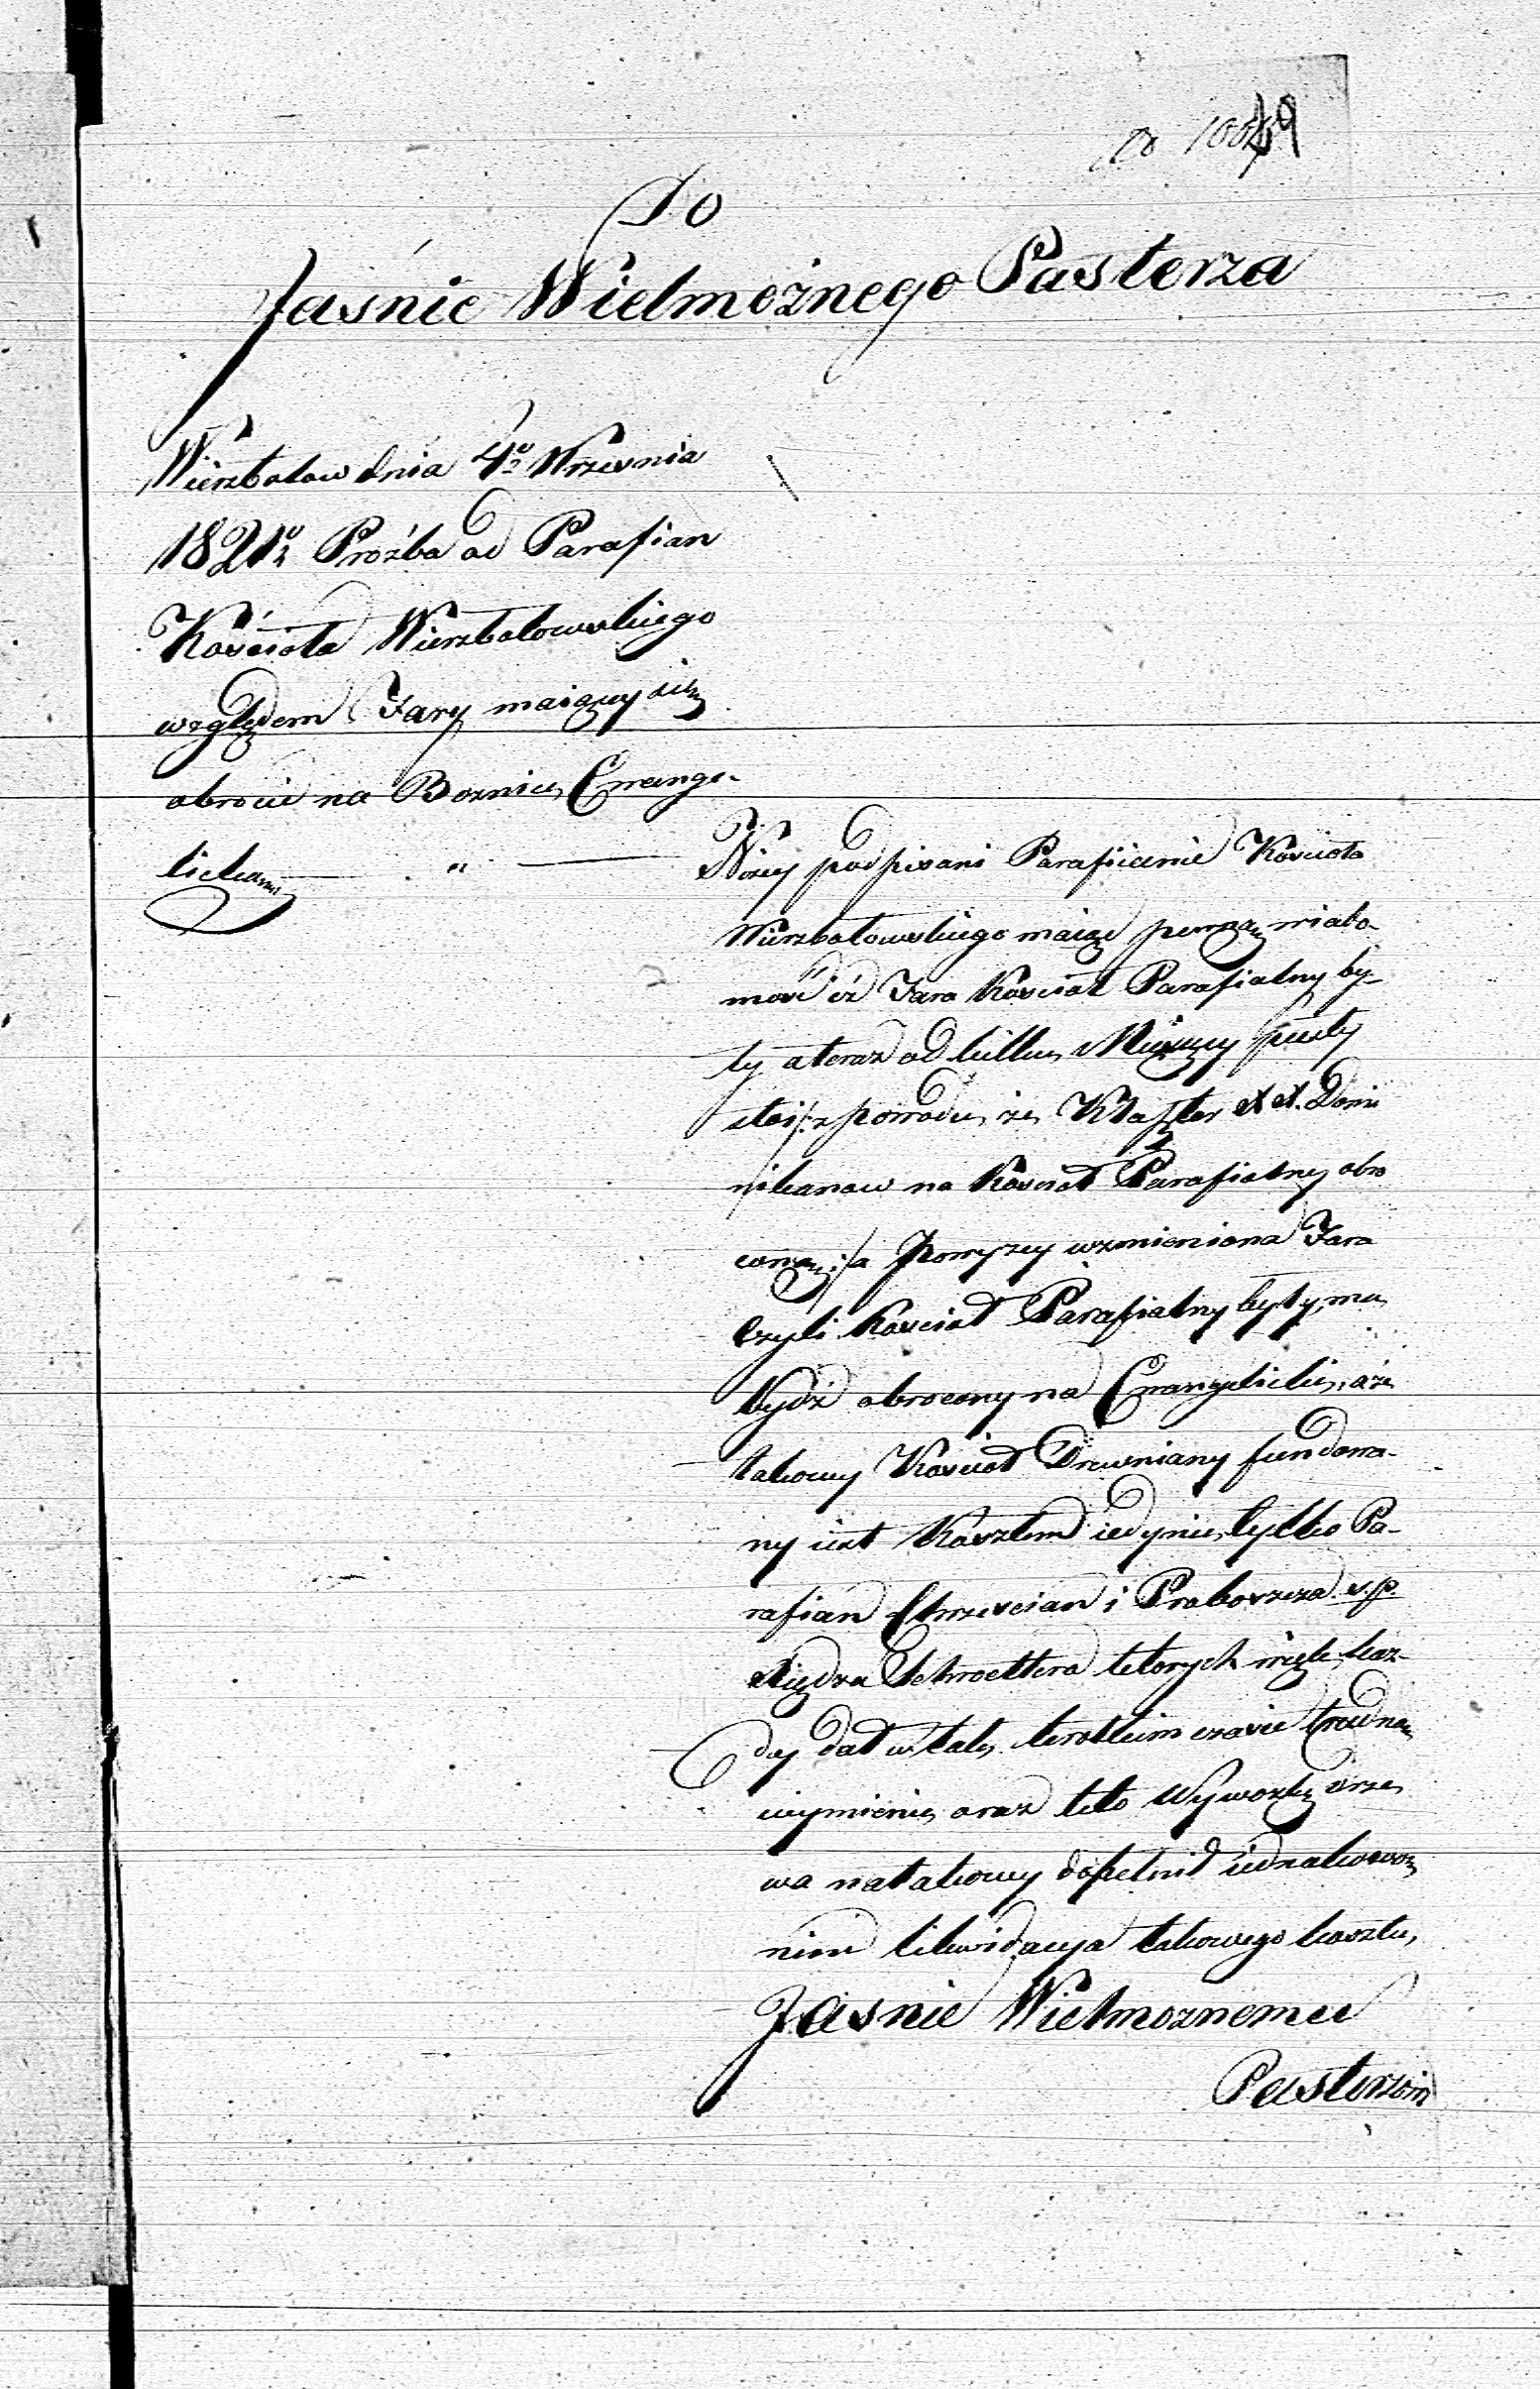 Do
Jaśnie Wielmożnego Pasterza
Wierzbołow dnia 4º Września
1821º Prożba od Parafian
Kościoła Wierzbołowskiego
względem Fary maiącey się
obrocić na Boznicę Ewange-
licką
Niżey podpisani Parafiianie Kościoła
Wierzbołowskiego maiąc pewną wiado-
mość iż Fara Kościoł Parafialny by-
ły a teraz od kilku Miesięcy pusty
stoi /: z powodu że Klasztor XX. Domi
nikanow na Koscioł Parafialny obro
cony :/ a powyżey wzmieniona Fara
czyli Kosciół Parafialny były, ma
bydź obrocony na Ewangelicki, a że
takowy Kościoł Drewniany fundowa-
ny iest Kosztem iedynie tylko Pa-
rafian Chrześcian i Proboszcza ś. p.
Xiędza Schroettera ktorych więc każ-
dy dał w tak krotkim czasie trudno
wymienić oraz kto Wywozkę drze
wa na takowy dopełnił iednakowoż
nim likwidacya takowego kosztu,
Jasnie Wielmoznemu
Pasterzowi